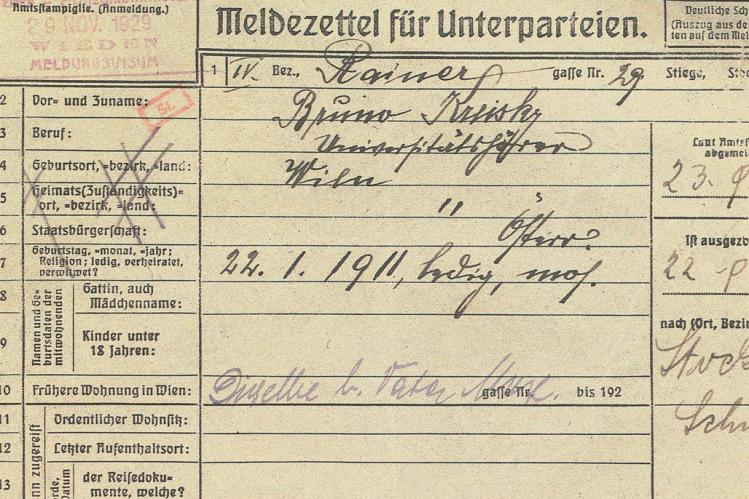 Amtsstampiglie. (Anmeldung.)
29. NOV. 1929
WIEDEN
MELDUNGSVISUM
Meldezettel für Unterparteien.
Deutliche Sch
(Auszug aus de
ten auf dem Mel
1 IV. Bez., Rainer gasse Nr. 29 Stiege,
2 Vor- und Zuname: Bruno Kreisky
St.
3 Beruf: Universitätshörer
4 Geburtsort, =bezirk, =land: Wien
5 Heimats(Zuständigkeits)=
ort, =bezirk, =land: " "
6 Staatsbürgerschaft: Österr.
7 Geburtstag, =monat, =jahr;
Religion; ledig, verheiratet,
verwitwet?
22. 1. 1911, ledig, mos.
8 Gattin, auch
Mädchenname:
Namen und Ge-
burtsdaten der
mitwohnenden
9 Kinder unter
18 Jahren:
10 Frühere Wohnung in Wien: Dieselbe b. Vater Max. gasse Nr. bis 192
11 Ordentlicher Wohnsitz:
12 Letzter Aufenthaltsort:
13 der Reisedoku-
mente, welche?
nn zugereist
Datum
Laut Amts
abgemel
23.
Ist ausgezo
22
nach (Ort, Bezir
Stock
Schw